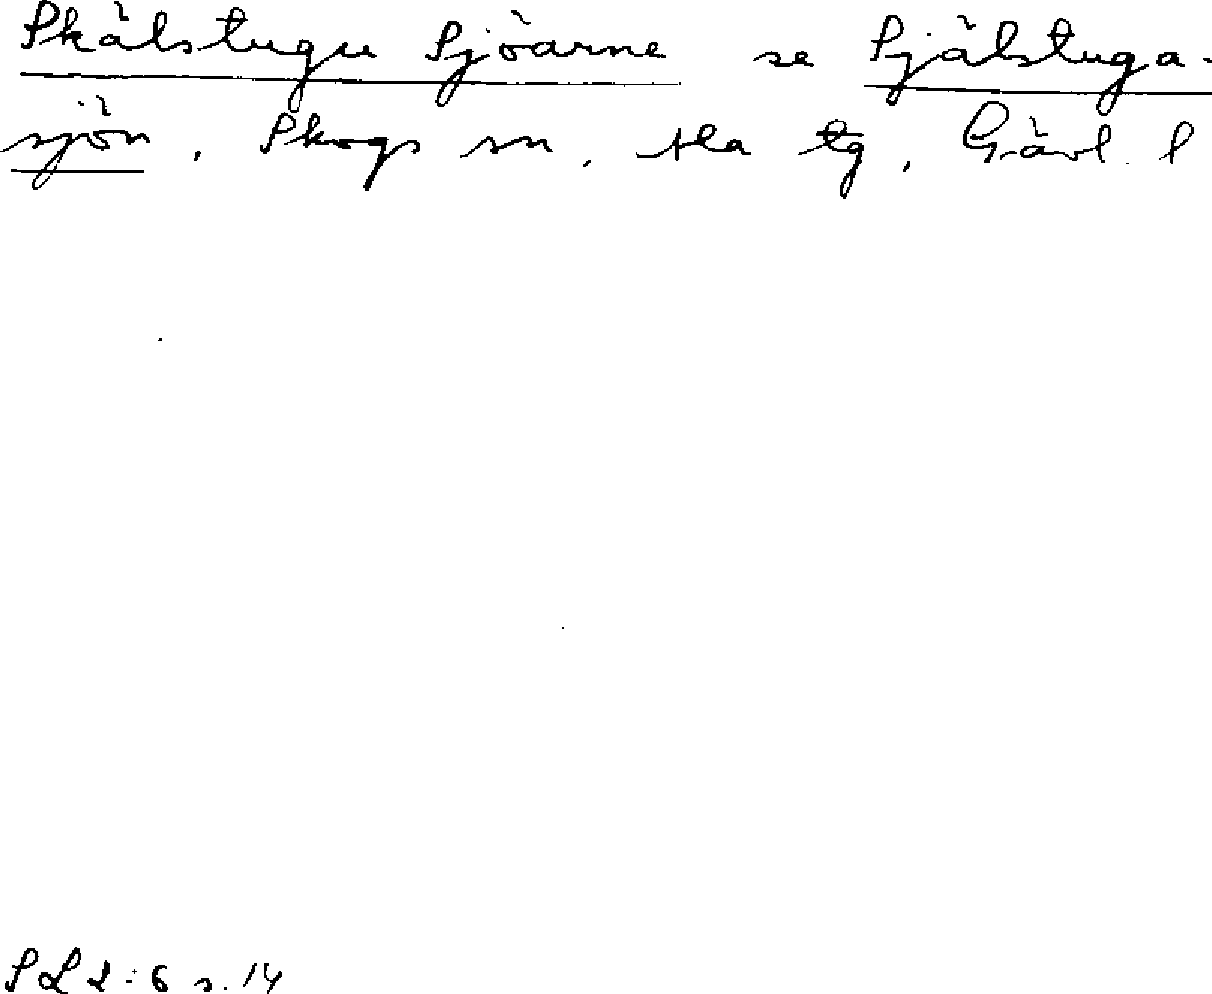 Skälstugu Sjöarne se Själstuga-
sjön, Skogs sn, Ala tg, Gävl. l
SL 2:6 s. 14